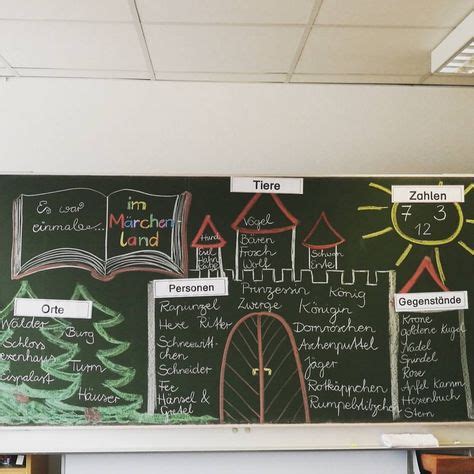 Es war
einmal...
im
Märchen-
land
Tiere
Hund
Esel
Hahn
Katze
Vögel
Bären
Frosch
Wolf
Schwan
Ente
Zahlen
7 3
12
Orte
Wälder
Burg
Schloss
exenhaus
Turm
Eispalast
Häuser
Personen
Rapunzel
Hexe Ritter
Schneewitt-
chen
Schneider
Fee
Hänsel &
Gretel
Prinzessin König
Zwerge Königin
Dornröschen
Aschenputtel
Jäger
Rotkäppchen
Rumpelstilzchen
Gegenstände
Krone
goldene Kugel
Nadel
Spindel
Rose
Apfel Kamm
Hexenbuch
Stern